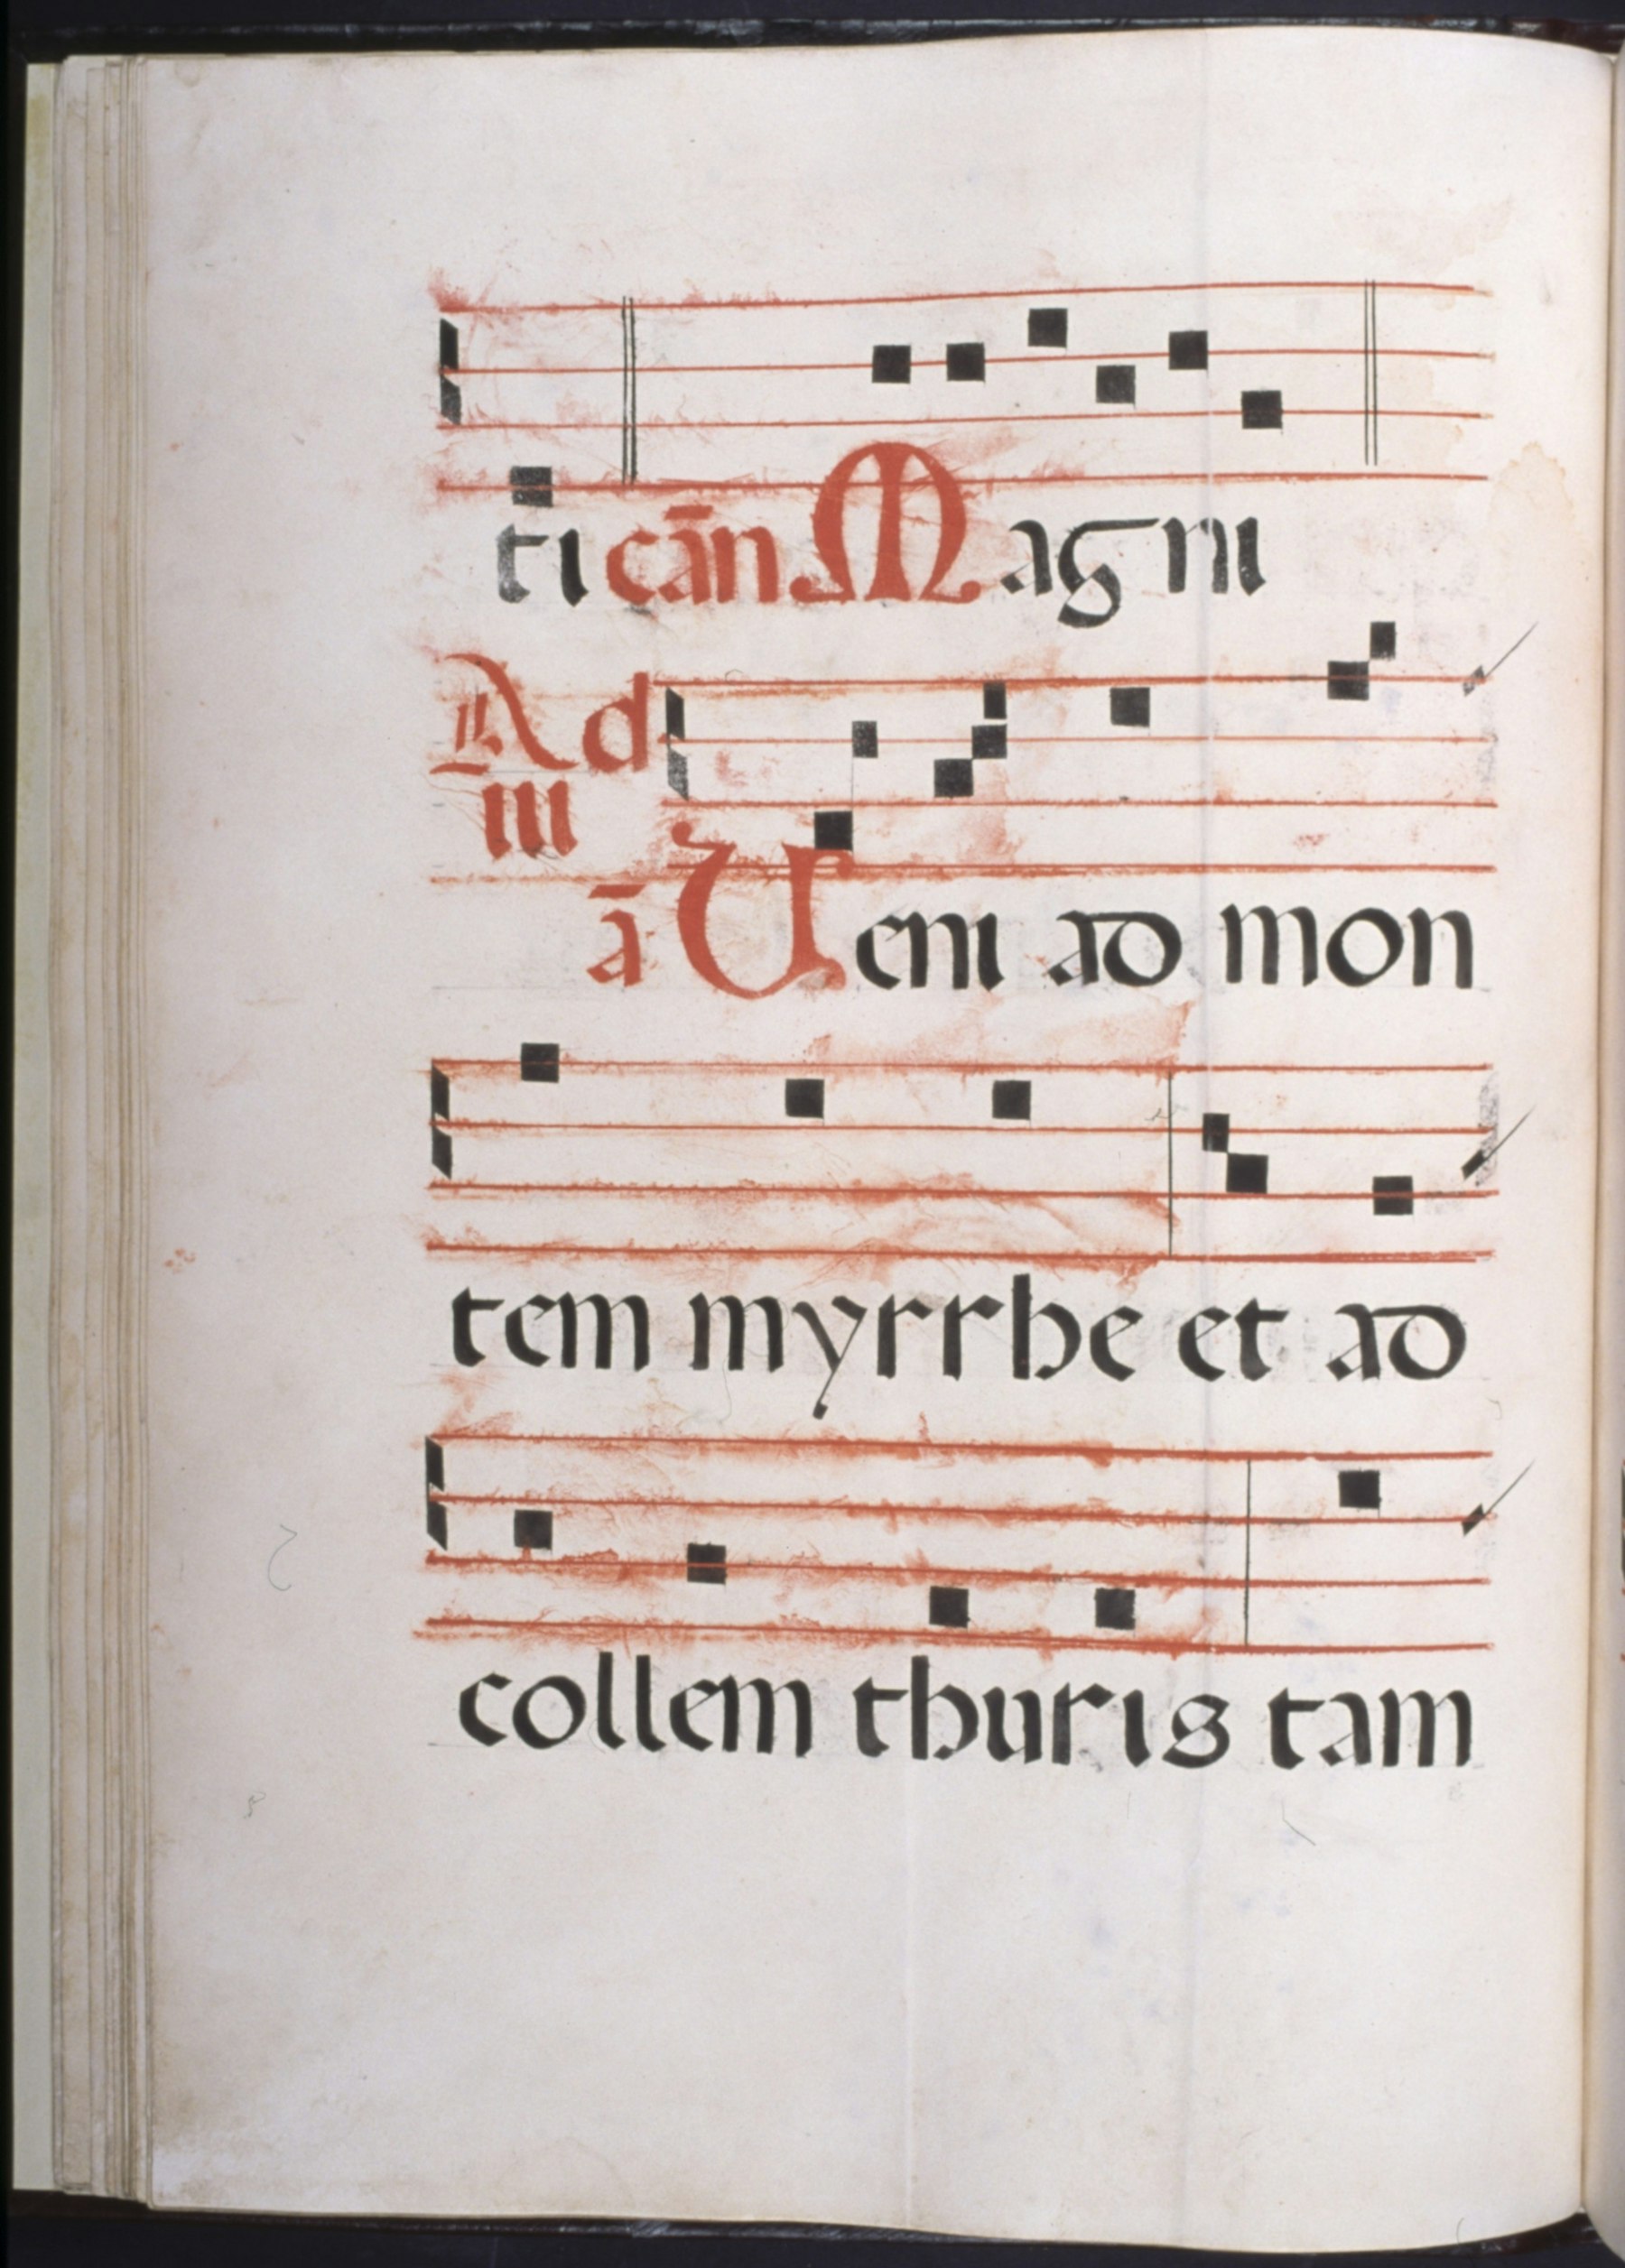 ti cān Magni
Ad
III
ā Veni ad mon
tem myrrhe et ad
collem thuris tam